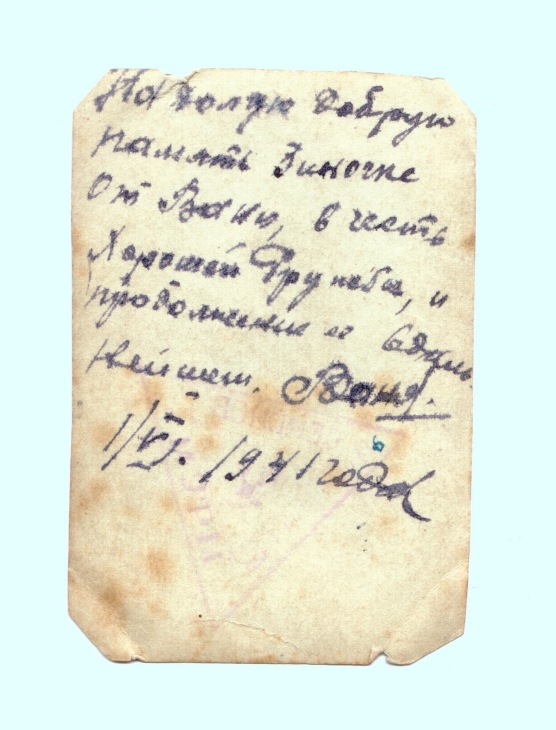 На долгую добрую
память Зиночке
От Вани, в честь
Хорошей Дружебы, и
продолжение и вдаль
нейшем. Ваня.
1/VI. 1941 года